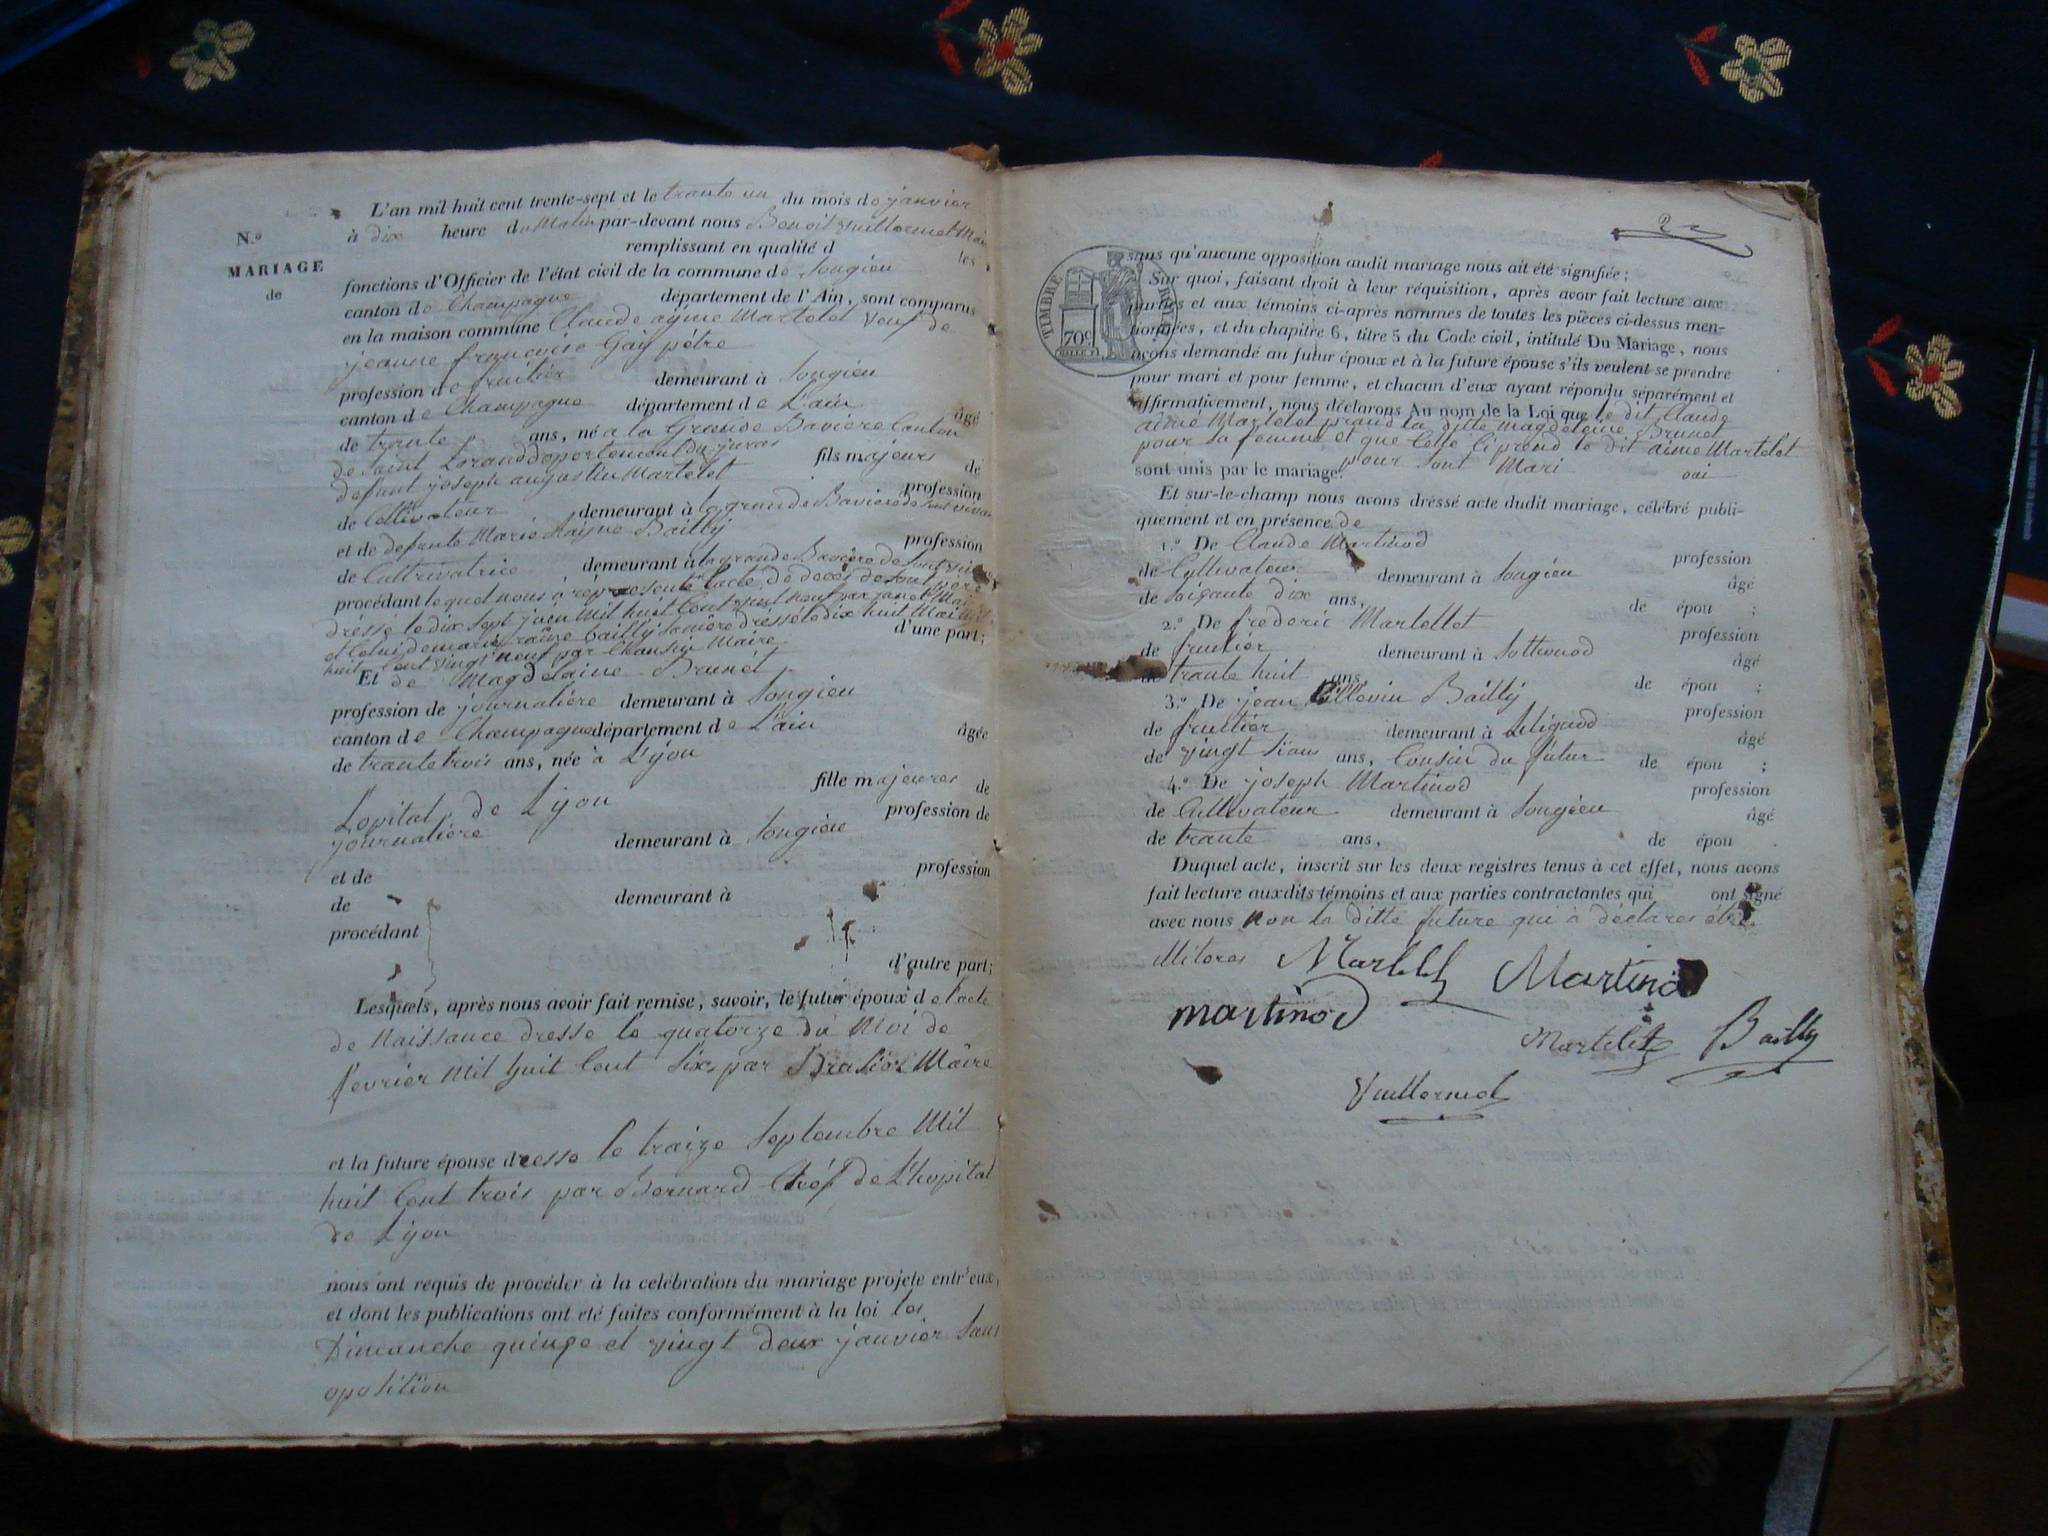 N.o
MARIAGE
de
L'an mil huit cent trente-sept et le trante un du mois de janvier
à dix heure du Matin par-devant nous Benoit Vuillermet Mai
remplissant en qualité d les
fonctions d'Officier de l'état civil de la commune de Songieu
canton de Champagne département de l'Ain, sont comparus
en la maison commune Claude ayme Martelet veuf de
jeanne francoise Gay pètre
profession de fruitier demeurant à Songieu
canton de Champagne département de L'ain âgé
de trante ans, né a la Grande Baviere Canton
de Saint Lorand departement du juras fils majeurs de
defunt joseph augustin Martelet profession
de Cultivateur demeurant à la grande Baviere de
et de defunte Marie Rayne Bailly profession
de Cultivatrice demeurant à la grande Baviere de
procédant lequel nous à représenté l'acte de deces de sont père
dressé le dix sept juin Mil huit Cent vint neuf par
et Celui de marie raine bailly sa mère dressé le dix huit Mai mil
huit Cent vingt neuf par Chanson Maire d'une part;
Et de Magdelaine Brunet
profession de journalière demeurant à Songieu
canton de Champagne département de L'ain âgée
de trante trois ans, née à Lyon
fille majeures de
Lopital de Lyon profession de
journalière demeurant à Songieu
et de profession
de demeurant à
procédant
d'autre part;
Lesquels, après nous avoir fait remise, savoir, le futur époux de l'acte
de Naissance dresse le quatorze du Moi de
fevrier Mil huit Cent Six par Maire
et la future épouse dresse le traize Septembre Mil
huit Cent trois par Bernard Chéf de L'hopital
de Lyon
nous ont requis de procéder à la celébration du mariage projeté entr'eux,
et dont les publications ont été faites conformément à la loi les
Dimanche quinze et vingt deux janvier Sans
oposition
2
TIMBRE ROYAL
70c
sans qu'aucune opposition audit mariage nous ait été signifiée;
Sur quoi, faisant droit à leur réquisition, après avoir fait lecture aux
parties et aux témoins ci-après nommés de toutes les pièces ci-dessus men-
tionnées, et du chapitre 6, titre 5 du Code civil, intitulé Du Mariage, nous
avons demandé au futur époux et à la future épouse s'ils veulent se prendre
pour mari et pour femme, et chacun d'eux ayant répondu séparément et
affirmativement, nous déclarons Au nom de la Loi que le dit Claude
aimé Martelet prand la ditte magdeleine Brunet
pour sa femme et que Celle Ci prend le dit aime Martelet
sont unis par le mariage. pour sont Mari oui
Et sur-le-champ nous avons dressé acte dudit mariage, célébré publi-
quement et en présence de
1.o De Claude Martinod profession
de Cultivateur demeurant à Songieu âgé
de Soigante dix ans, de épou ;
2.o De frederic Martellet profession
de fruitier demeurant à Sothonod âgé
de trante huit ans, de épou ;
3.o De jean Bailly profession
de fruitier demeurant à Liliguod âgé
de vingt ans, Cousin du futur de épou ;
4.o De joseph Martinod profession
de Cultivateur demeurant à Songieu âgé
de trante ans, de épou .
Duquel acte, inscrit sur les deux registres tenus à cet effet, nous avons
fait lecture auxdits témoins et aux parties contractantes qui ont signé
avec nous non la ditte future qui a déclares être
illiteres Martelet Martinod
martinod
Martelet Bailly
Vuillermet